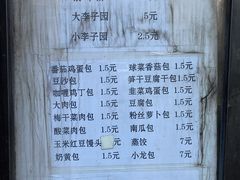 大李子园 5元
小李子园 2.5元
番茄鸡蛋包 1.5元 球菜香菇包 1.5元
豆沙包 1.5元 笋干豆腐干包 1.5元
咖喱鸡丁包 1.5元 韭菜鸡蛋包 1.5元
大肉包 1.5元 豆腐包 1.5元
梅干菜肉包 1.5元 粉丝萝卜包 1.5元
酸菜肉包 1.5元 南瓜包 1.5元
玉米红豆馒头 元 蒸饺 7元
奶黄包 1.5元 小龙包 7元